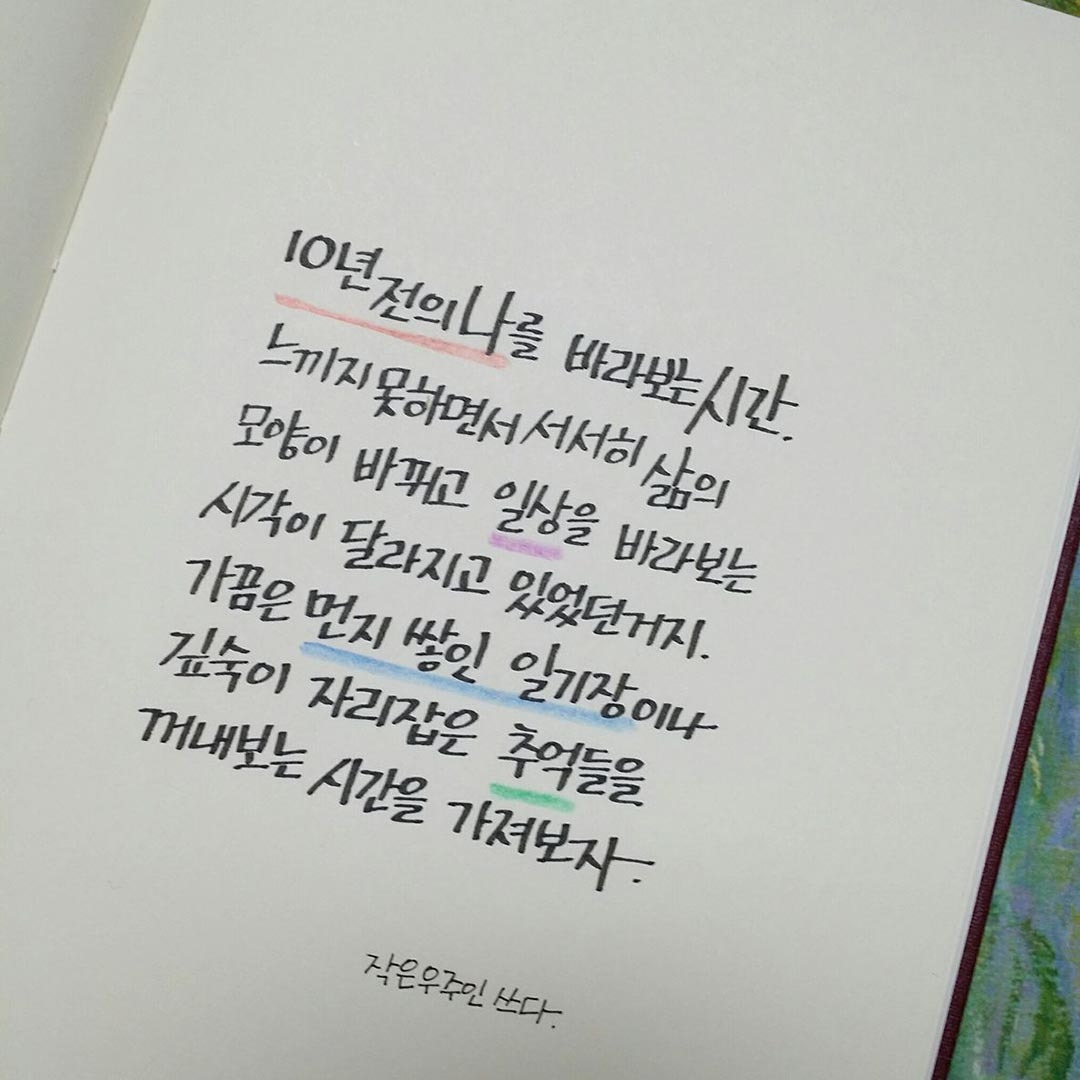 10년전의 나를 바라보는 시간.
느끼지 못하면서 서서히 삶의
모양이 바뀌고 일상을 바라보는
시각이 달라지고 있었던거지.
가끔은 먼지 쌓인 일기장이나
깊숙이 자리잡은 추억들을
꺼내보는 시간을 가져보자.
작은우주인 쓰다.